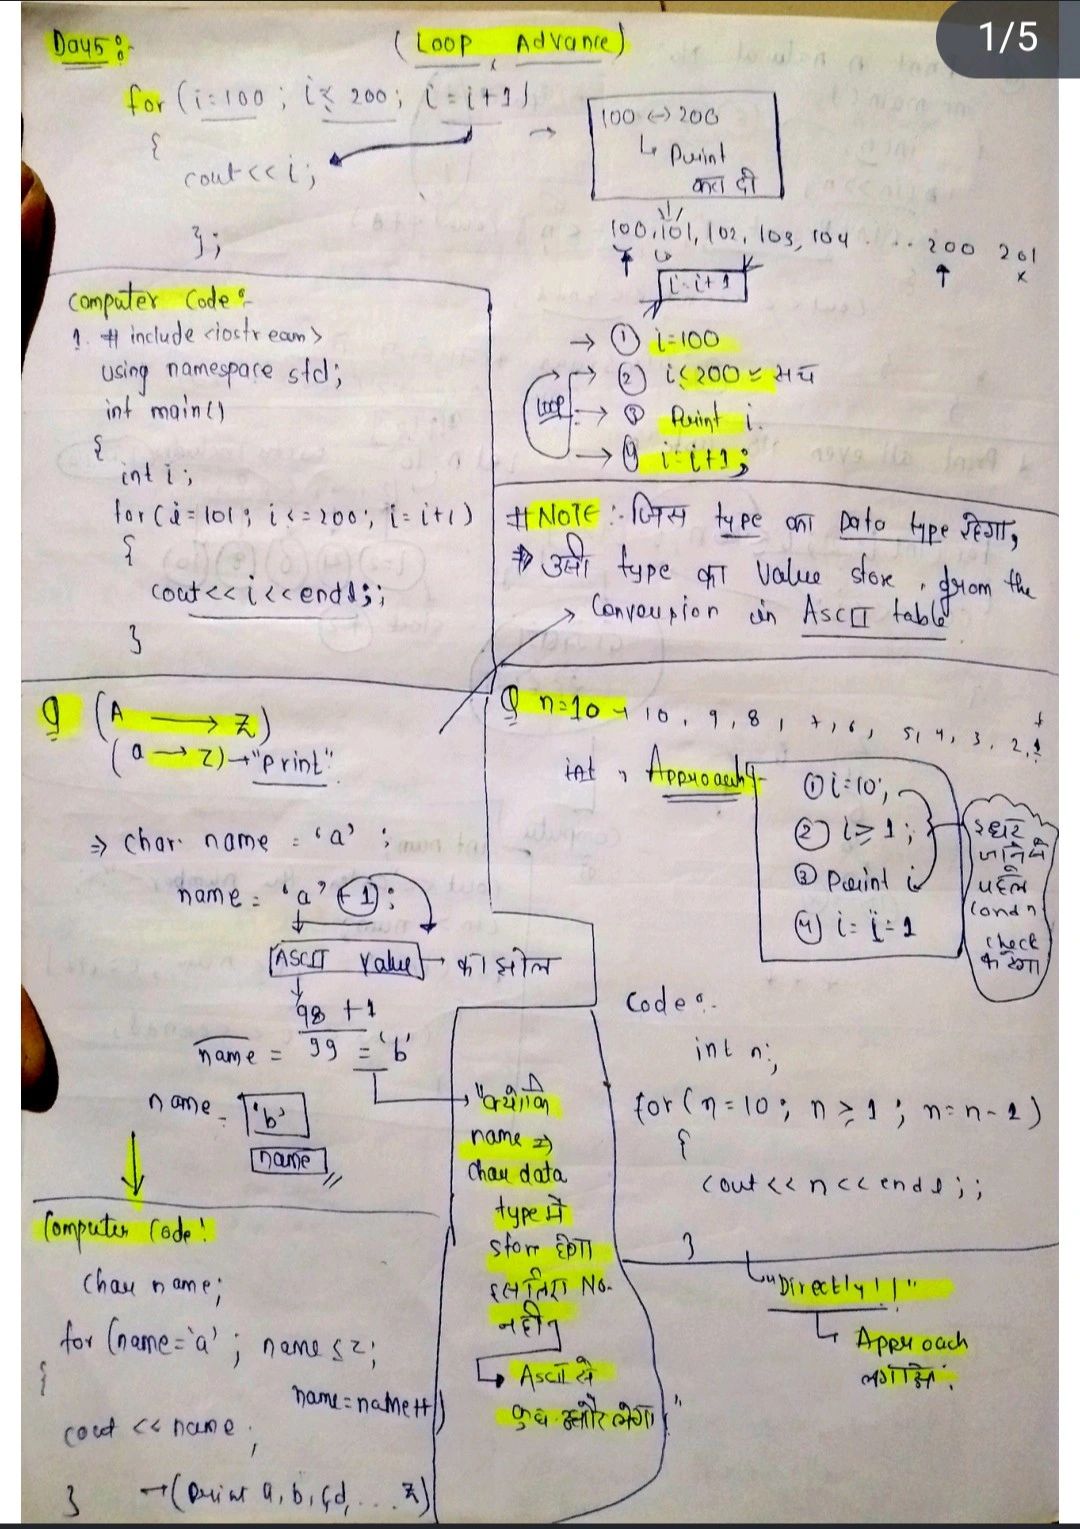 1/5
Day5:-
(Loop Advance)
for (i=100 ; i≤ 200; i=i+1)
{
cout<<i;
};
100 ↔ 200
↳ Print
करा दी
100,101,102, 103, 104 .... 200 201
x
i=i+1
→ ① i=100
→ ② i≤200 = सच
loop → ③ Print i.
→ ④ i=i+1;
Computer Code:-
1. # include <iostream>
using namespace std;
int main()
{
int i;
for(i=101; i<=200; i=i+1)
{
cout<<i<<endl;;
}
# NOTE:- जिस type का Data type रहेगा,
⇒ उसी type का Value store, from the
→ Conversion in ASCII table
Q (A → Z)
(a → z)→"print"
⇒ char name = 'a' ;
name = 'a' +1;
ASCII Value → का झोल
98 +1
name = 99 = 'b'
name = 'b'
name
"क्योंकि
name ⇒
char data
type में
store होगा
इसलिए No.
नहीं
↳ ASCII से
कुछ और लेगा"
Q n=10 → 10, 9, 8, 7, 6, 5, 4, 3, 2, 1
int, Approach:-
① i=10;
② i≥1;
③ Print i
④ i= i-1
इधर
जाने से
पहले
condn
check
करेगा
Code:-
int n;
for(n=10; n≥1; n=n-1)
{
cout<<n<<endl;;
}
↳"Directly!!"
↳ Approach
लगाओ.
Computer Code!
char name;
for (name='a' ; name≤z;
name=name++)
{
cout << name;
} →(print a,b,c,d,... z)